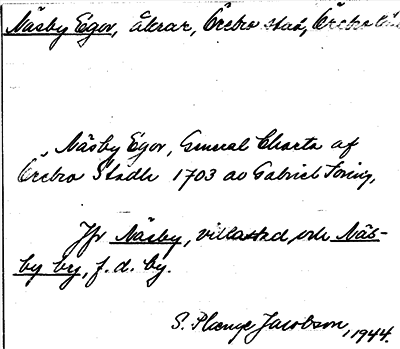 Näsby Egor, åkrar, Örebro stad, Örebro län
„Näsby Egor, General Charta af
Örebro Stadh 1703 av Gabriel
Jfr Näsby, villastad, och Näs-
by by, f.d. by.
S. Plenge Jacobson, 1944.